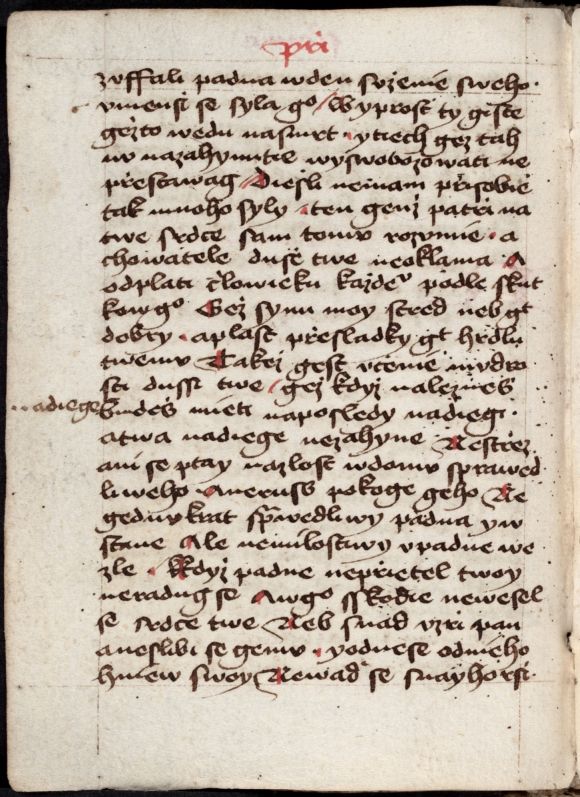 pri
zuffali padna wden suzenie sweho·
vmensi se syla go / Wyprost ty giste
gezto wedu nasmrt · ytiech gez tah
nu nazahynutie wyswobozowati ne
prestawag / Diesli neinam prisobie
tak mnoho syly · ten genz patri na
twe srdce sam tomu rozumie · a
chowatele dusse twe neoklama · A
odplati czlowieku kazdeu podle skut
kow go Gez synu moy stred neb gt
dobry · aplast presladky gt hrdlu
twemu Takez gest vczenie mudro
sti dussi twe / gez kdyz nalezness
nadiege
budess mieti naposledy nadiegi ·
atwa nadiege nezahyne Nestrez
ani se ptay nazlost wdomu sprawed
liweho · Aneruss pokoge geho Ne
gedmkrat sprawedliwy padna yw
stane Ale nemilostiwy vpadne we
zle · Kdyz padne neprietel twoy
neradug se Awgo sskodie newesel
se srdce twe Neb snad uzri pan
aneslibi se gemu · yodnese odnieho
hniew swoy Newad se snayhorsi·